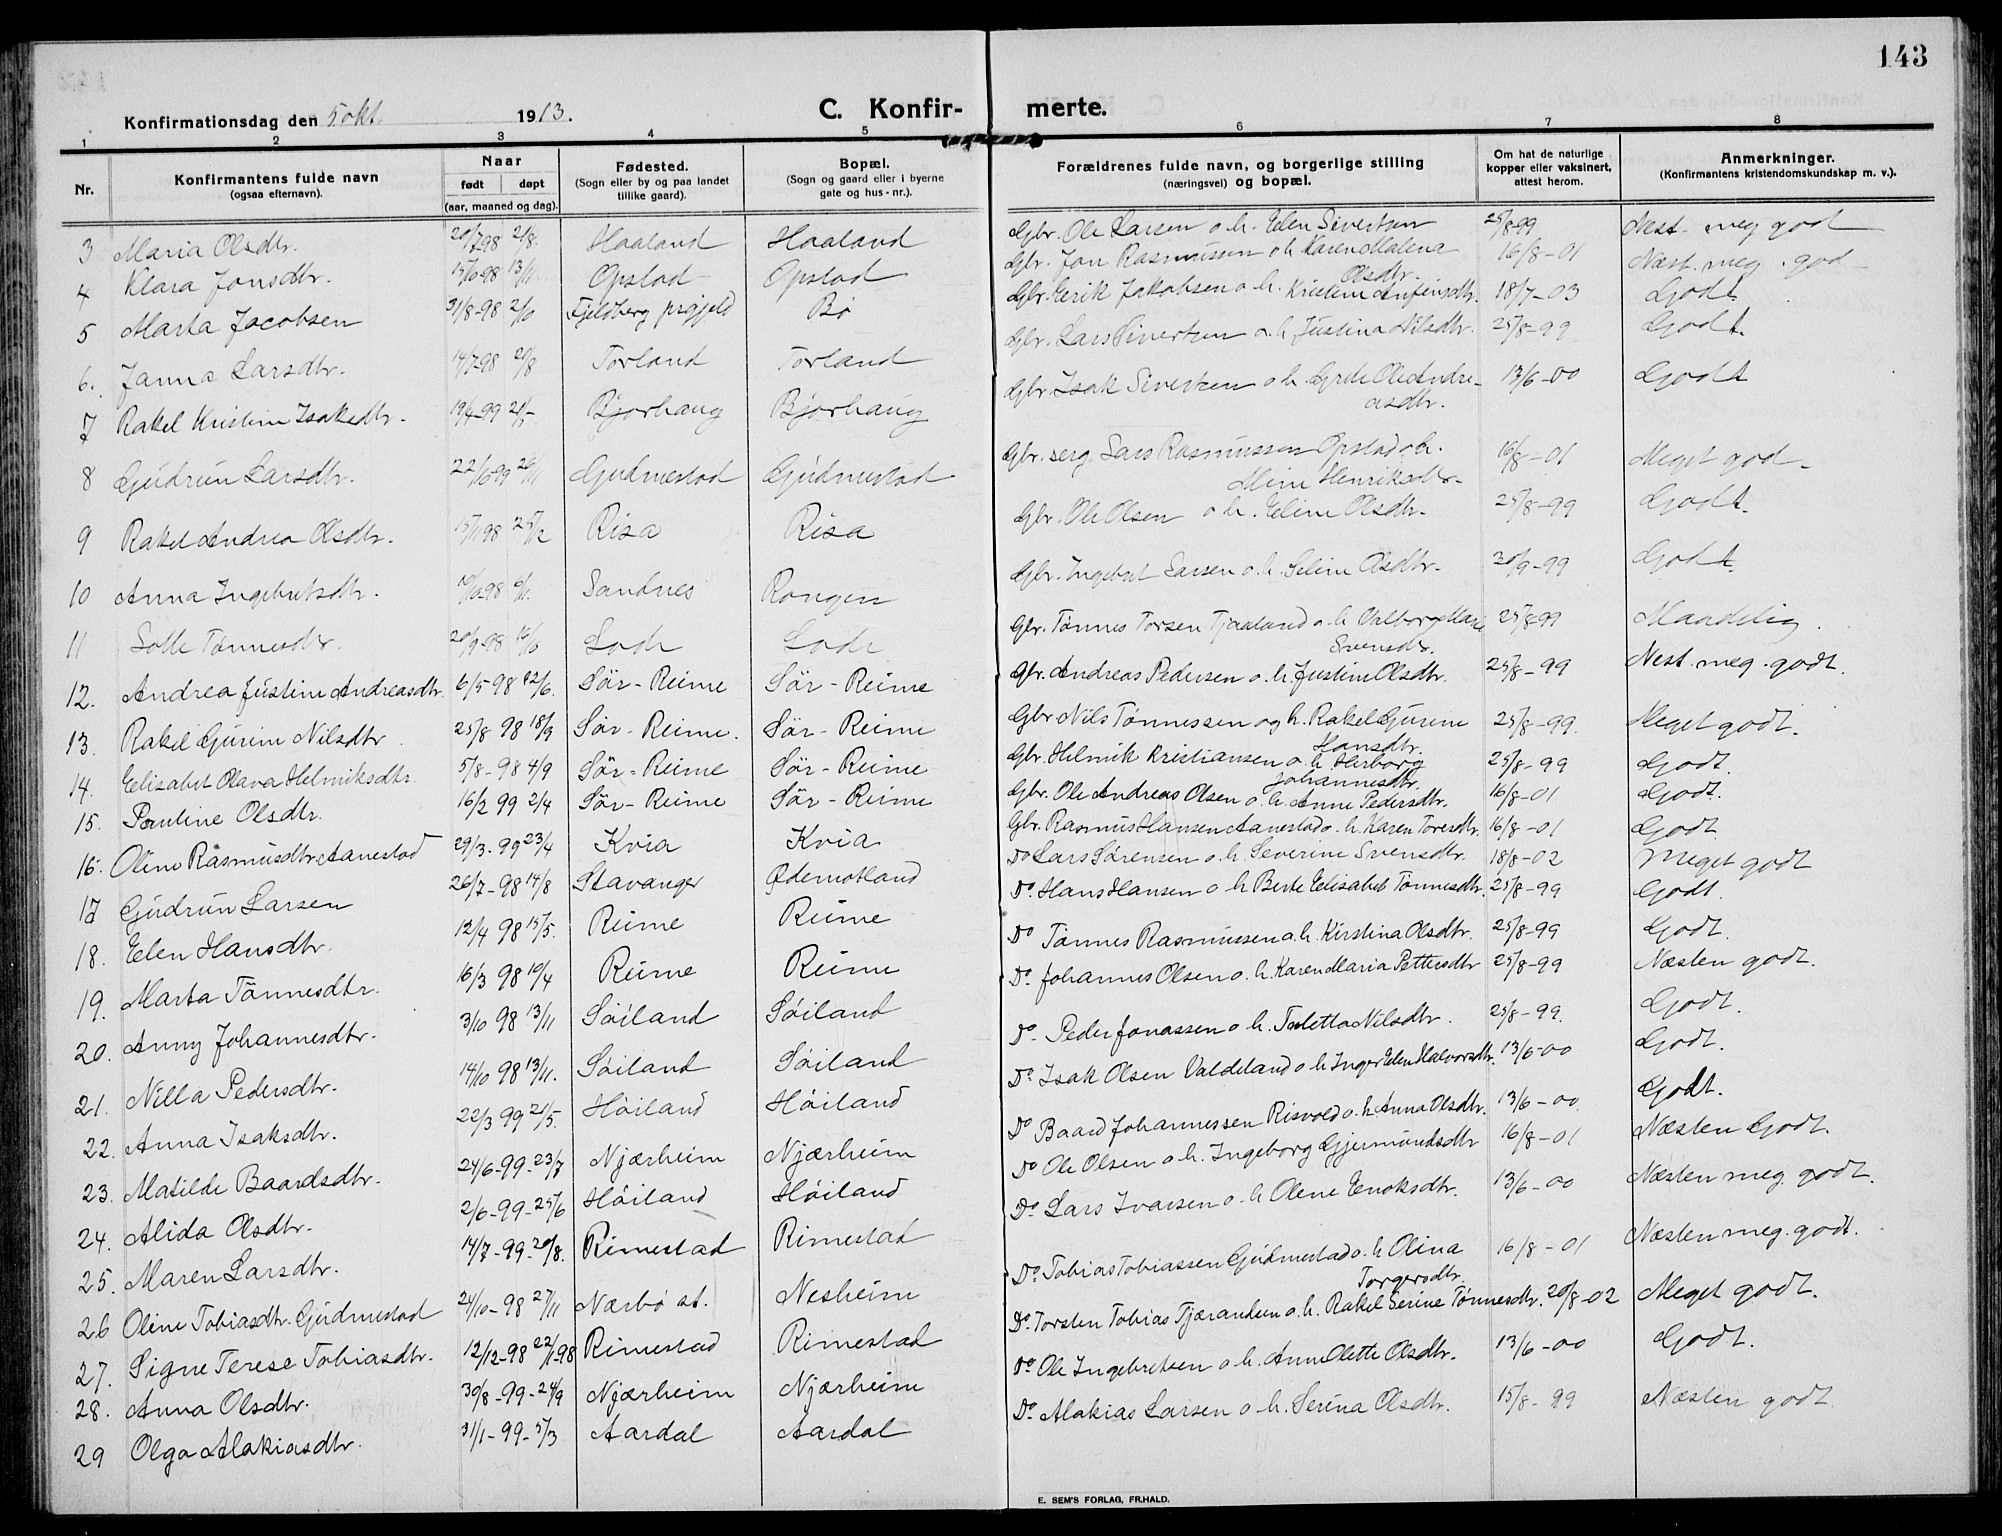 143
Konfirmationsdag den 5 okt. 1913. C. Konfir- merte.
1 2 3 4 5 6 7 8
Nr. Konfirmantens fulde navn (ogsaa efternavn). Naar født døpt (aar, maaned og dag). Fødested. (Sogn eller by og paa landet tillike gaard). Bopæl. (Sogn og gaard eller i byerne gate og hus-nr.). Forældrenes fulde navn, og borgerlige stilling (næringsvei) og bopæl. Om hat de naturlige kopper eller vaksinert, attest herom. Anmerkninger. (Konfirmantens kristendomskundskap m. v.).
3 Maria Olsdtr. 20/7 98 2/8. Haaland Haaland Gbr. Ole Larsen o. h. Elen Sivertsen 25/8-99 Nest. meg godt
4 Klara Jonsdtr. 15/10 98 13/11 Opstad Opstad Gbr. Jon Rasmussen o h. Karen Malena Olsdtr. 16/8-01 Næst. meg. god
5 Marta Jacobsen 31/8-98 2/10 Fjeldberg prgjeld Bø Gbr. Eerik Jakobsen o. h. Kristine Anfinsdtr. 18/7-03 Godt
6. Janna Larsdtr. 14/7-98 21/8 Torland Torland Gbr. Lars Sivertsen o. h. Justina Nilsdtr. 25/8-99 Godt.
7 Rakel Kristine Isaksdtr. 19/4-99 21/5- Bjorhaug Bjorhaug Gbr. Isak Sivertsen o h. Grete Ole Andreasdtr. 13/6-00 Godt
8 Gudrun Larsdtr. 22/10-99 26/11 Gudmestad Gudmestad Gbr. serg. Lars Rasmussen Opstad o h. Mine Henriksdtr. 16/8-01 Meget god.
9 Rakel Andrea Olsdtr. 15/11 98 25/12 Risa Risa Gbr. Ole Olsen o h. Eline Olsdtr. 25/8-99 Godt.
10 Anna Ingebretsdtr. 10/10-98 6/11. Sandnes Rongen Gbr. Ingebret Larsen o. h. Seline Olsdtr. 30/9-99 Godt.
11 Lolle Tønnesdtr 20/9-98 16/10 Lode Lode Gbr. Tønnes Torsen Tjaaland o. h Valborg Marie Svensdtr. 25/8-99 Maadelig.
12. Andrea Justine Andreasdtr. 6/5-98 12/6. Sör-Reime Sör-Reime Gbr. Andreas Pedersen o. h. Justine Olsdtr. 25/8-99 Nest. meg. godt.
13. Rakel Gurine Nilsdtr 25/8 98 18/9 Sør-Reime. Sør-Reime Gbr Nils Tønnessen og h. Rakel Gurine Hansdtr. 25/8-99. Meget godt.
14. Elisabet Olava Helmiksdtr. 5/8-98 4/9 Sör-Reime Sör-Reime Gbr. Helmik Kristiansen o. h Herborg Johannesdtr. 25/8-99 Godt.
15. Pauline Olsdtr. 16/2 99 2/4 Sör-Reime Sör-Reime Gbr. Ole Andreas Olsen o. h. Anne Pedersdtr. 16/8-01 Godt.
16. Oline Rasmusdtr Aanestad 29/3-99 23/4 Kvia Kvia Gbr. Rasmus Hansen Aanestad o. h. Karen Toresdtr. 16/8-01 Godt.
17 Gudrun Larsen 26/7-98 14/8 Stavanger Ødemotland Do Lars Sørensen o. h. Severine Svensdtr. 18/8-02 Meget godt
18. Elen Hansdtr. 12/4 98 15/5. Reime Reime Do. Hans Hansen o h. Berte Elisabet Tönnesdtr. 25/8-99 Godt.
19. Marta Tønnesdtr. 16/3 98 10/4 Reime Reime Do Tønnes Rasmussen o. h. Kirstina Olsdtr. 25/8-99 Godt.
20. Anny Johannesdtr. 3/10 98 13/11 Søiland Søiland Do. Johannes Olsen o. h. Karen Maria Pettersdtr 25/8-99 Næsten godt.
21. Nilla Pedersdtr. 14/10 98 13/11. Søiland Søiland Do. Peder Jonassen o h. Taletta Nilsdtr. 25/8-99. Godt.
22. Anna Isaksdtr. 22/3 99 21/5. Höiland Höiland Do. Isak Olsen Valdeland o h Inger Elen Halvorsdtr. 13/6-00 Godt.
23. Matilde Baardsdtr. 24/6-99-23/7 Njærheim Njærheim Do Baard Johannessen Risvold o. h. Anna Olsdtr. 13/6-00. Godt.
24. Alida Olsdtr. 2/6-99-25/6 Höiland Höiland Do Ole Olsen o h. Ingeborg Gjermundsdtr 16/8-01 Næsten Godt.
25. Maren Larsdtr. 14/7-99-20/8. Rimestad Rimestad Do Lars Ivarsen o. h Olene Enoksdtr. 13/6-00 Næsten meg. godt.
26 Oline Tobiasdtr. Gudmestad 24/10-98 27/11 Nærbø st. Nesheim Do. Tobias Tobiassen Gudmestad o. h Olina Torgersdtr. 16/8-01 Næsten meg. godt.
27. Signe Terese Tobiasdtr. 12/12-98 22/1-98 Rimestad Rimestad Do. Torsten Tobias Tjærandsen o. h. Rakel Serine Tønnesdtr. 20/8-02 Meget godt.
28. Anna Olsdtr. 30/8-99-24/9 Njærheim Njærheim Do Ole Ingebretsen o h. Ann Olette Olsdtr. 13/6-00 Godt.
29 Olga Alakiasdtr. 31/1-99-5/3 Aardal Aardal Do. Alakias Larsen o h. Serina Olsdtr. 15/8-99 Næsten godt.
E. SEM'S FORLAG, FR.HALD.